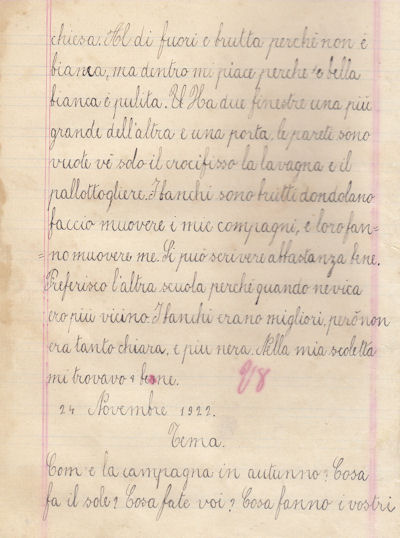 chiesa. Al di fuori e brutta perchè non è
bianca, ma dentro mi piace perche e bella
bianca è pulita. Ha due finestre una più
grande dell'altra e una porta, le pareti sono
vuote vè solo il crocifisso la lavagna e il
pallottogliere. I banchi sono brutti dondolano
faccio muovere i mie compagni, e loro fan=
=no muovere me. Si può scrivere abbastanza bene.
Preferisco l'altra scuola perchè quando nevica
ero più vicino. I banchi erano migliori, però non
era tanto chiara, e piu nera. Nella mia scoletta
mi trovavo bene.
24 Novembre 1922.
Tema.
Com'e la campagna in autunno? Cosa
fa il sole? Cosa fate voi? Cosa fanno i vostri